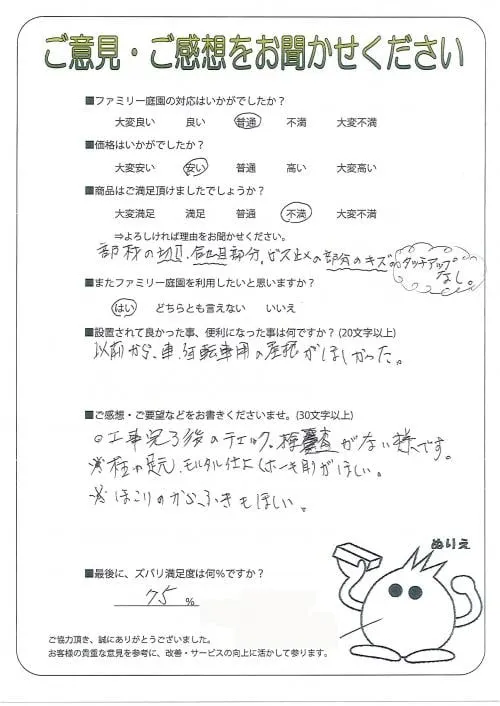 ご意見・ご感想をお聞かせください
■ファミリー庭園の対応はいかがでしたか？
大変良い 良い 普通 不満 大変不満
■価格はいかがでしたか？
大変安い 安い 普通 高い 大変高い
■商品はご満足頂けましたでしょうか？
大変満足 満足 普通 不満 大変不満
⇒よろしければ理由をお聞かせください。
部材の切口、部分、ビス止めの部分のキズのタッチアップ
なし。
■またファミリー庭園を利用したいと思いますか？
はい どちらとも言えない いいえ
■設置されて良かった事、便利になった事は何ですか？(20文字以上)
以前から、車、自転車用の屋根がほしかった。
■ご感想・ご要望などをお書きくださいませ。(30文字以上)
○工事完了後のチェック、検査がない様です。
※柱の足元、モルタル仕上(ホーキ目)がほしい。
※ほこりのからぶきもほしい。
ぬりえ
■最後に、ズバリ満足度は何％ですか？
75 ％
ご協力頂き、誠にありがとうございました。
お客様の貴重な意見を参考に、改善・サービスの向上に活かして参ります。